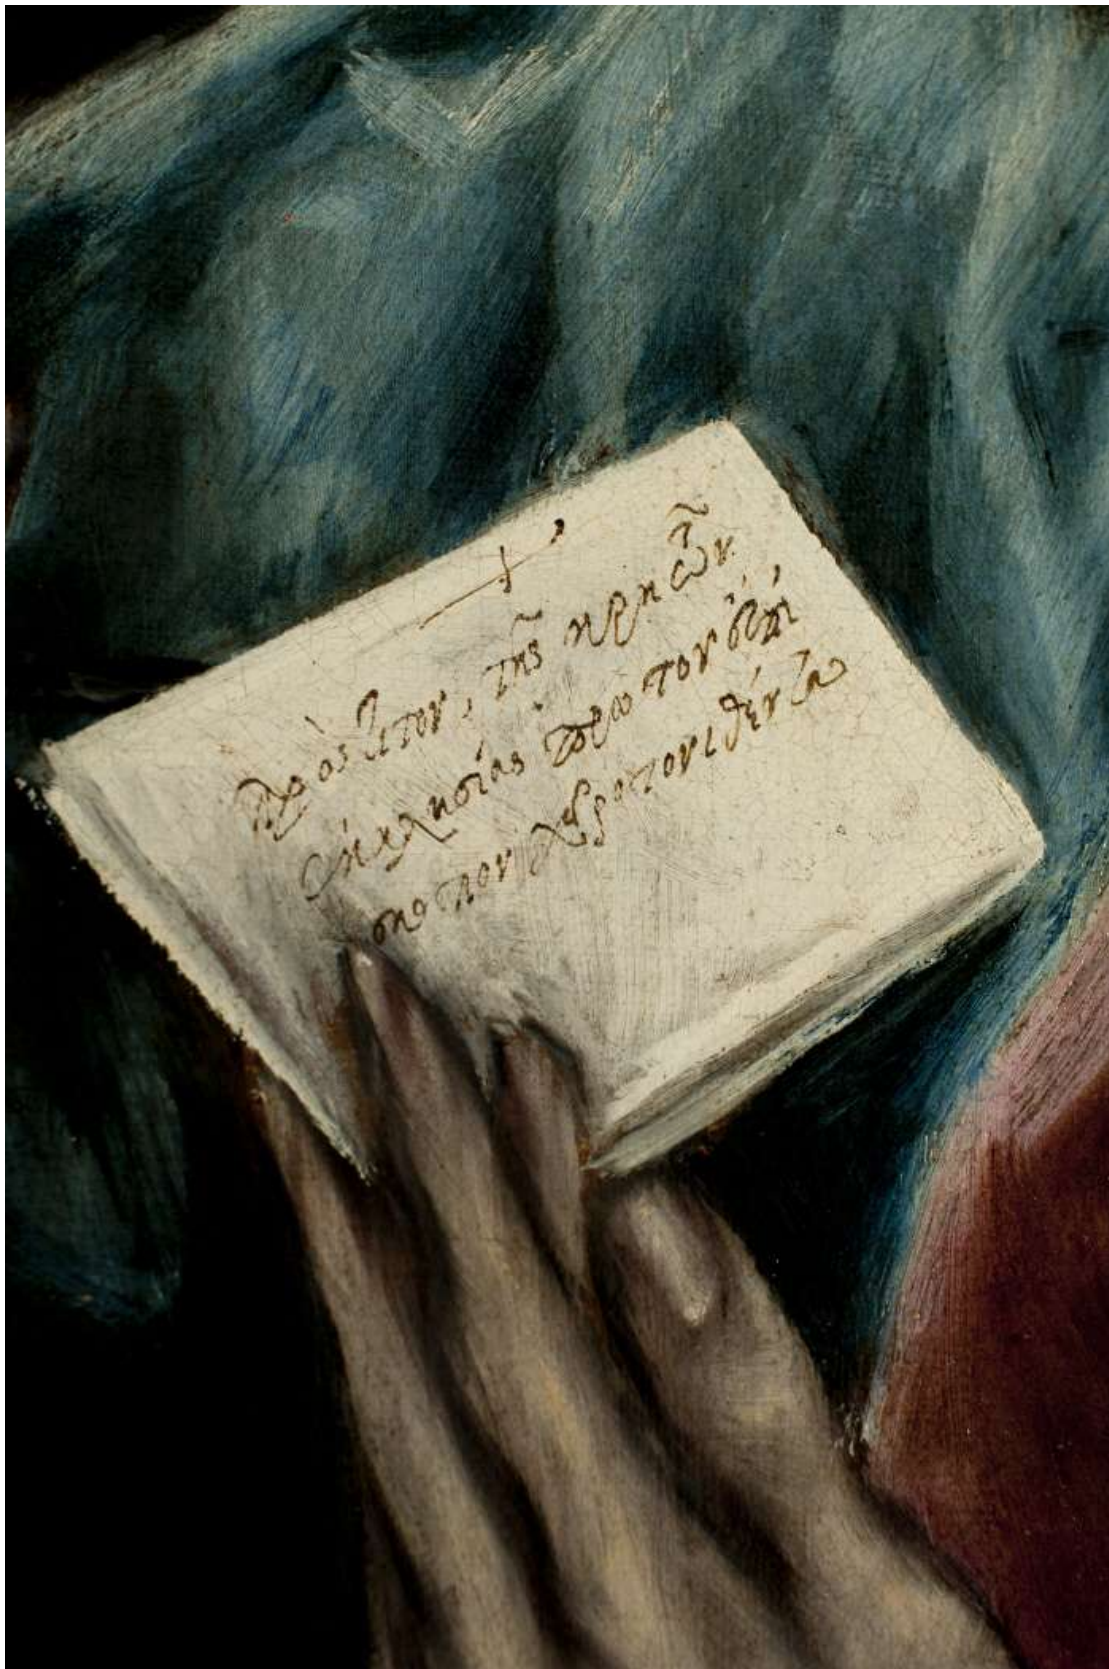 Πρὸς τίτον, τῆς κρητῶν
ἐκκλησίας πρῶτον ἐπί
σκοπον χειροτονιθέντα